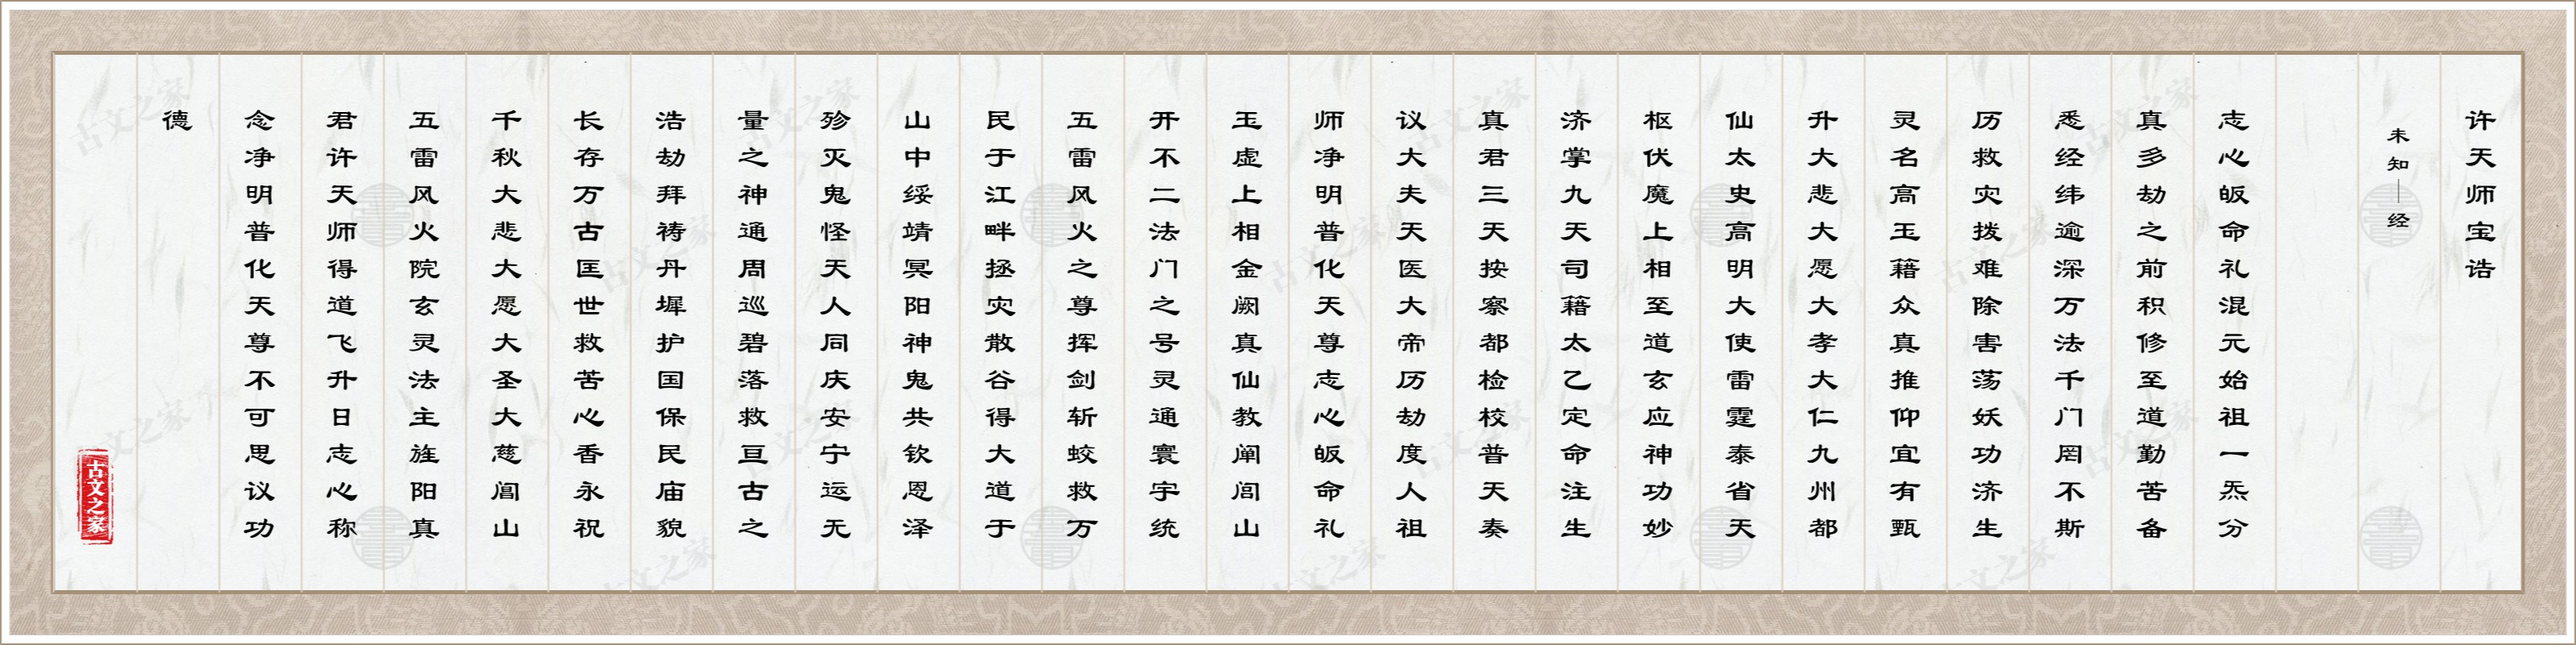 许天师宝诰
未知—经
志心皈命礼混元始祖一炁分
真多劫之前积修至道勤苦备
悉经纬逾深万法千门罔不斯
历救灾拨难除害荡妖功济生
灵名高玉藉众真推仰宜有甄
升大悲大愿大孝大仁九州都
仙太史高明大使雷霆泰省天
枢伏魔上相至道玄应神功妙
济掌九天司藉太乙定命注生
真君三天按察都检校普天奏
议大夫天医大帝历劫度人祖
师净明普化天尊志心皈命礼
玉虚上相金阙真仙教阐闾山
开不二法门之号灵通寰宇统
五雷风火之尊挥剑斩蛟救万
民于江畔拯灾散谷得大道于
山中绥靖冥阳神鬼共钦恩泽
殄灭鬼怪天人同庆安宁运无
量之神通周巡碧落救亘古之
浩劫拜祷丹墀护国保民庙貌
长存万古匡世救苦心香永祝
千秋大悲大愿大圣大慈闾山
五雷风火院玄灵法主旌阳真
君许天师得道飞升日志心称
念净明普化天尊不可思议功
德
古文之家